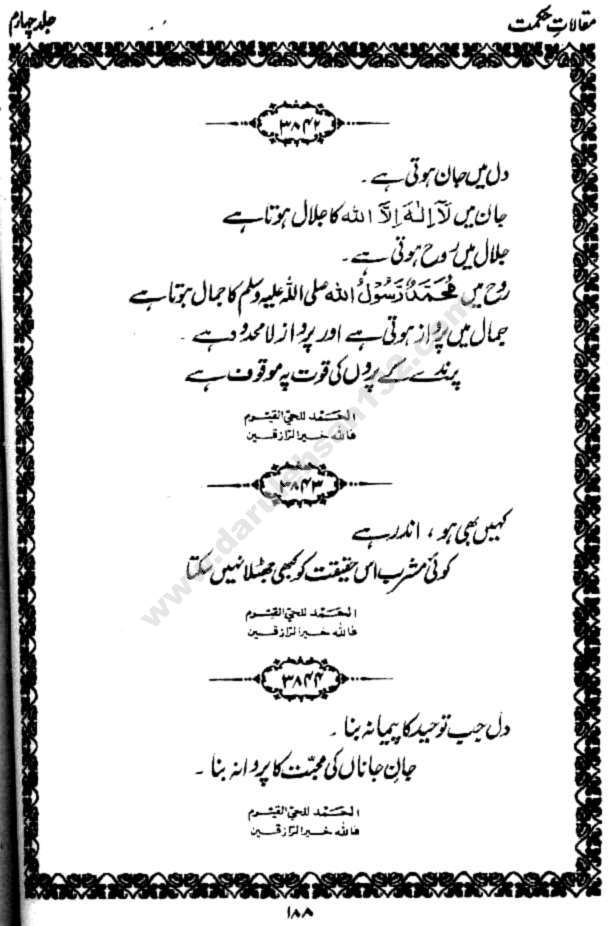 مقالاتِ حکمت
جلد چہارم
۳۸۴۲
دل میں جان ہوتی ہے ۔
جان میں لَآ اِلٰهَ اِلَّا الله کا جلال ہوتا ہے
جلال میں رُوح ہوتی ہے ۔
رُوح میں مُحَمَّدٌ رَّسُوْلُ الله صلی اللہ علیہ وسلم کا جمال ہوتا ہے
جمال میں پرواز ہوتی ہے اور پرواز لا محدود ہے ۔
پرندے کے پروں کی قوت پہ موقوف ہے
الحَمْد للحَيّ القَيُّوم
فالله خَيرُ الرّازقِين
۳۸۴۳
کہیں بھی ہو ، اندر ہے
کوئی مشرب اس حقیقت کو کبھی جھٹلا نہیں سکتا
الحَمْد للحَيّ القَيُّوم
فالله خَيرُ الرّازقِين
۳۸۴۴
دل جب توحید کا پیمانہ بنا ۔
جانِ جاناں کی محبّت کا پروانہ بنا ۔
الحَمْد للحَيّ القَيُّوم
فالله خَيرُ الرّازقِين
۱۸۸